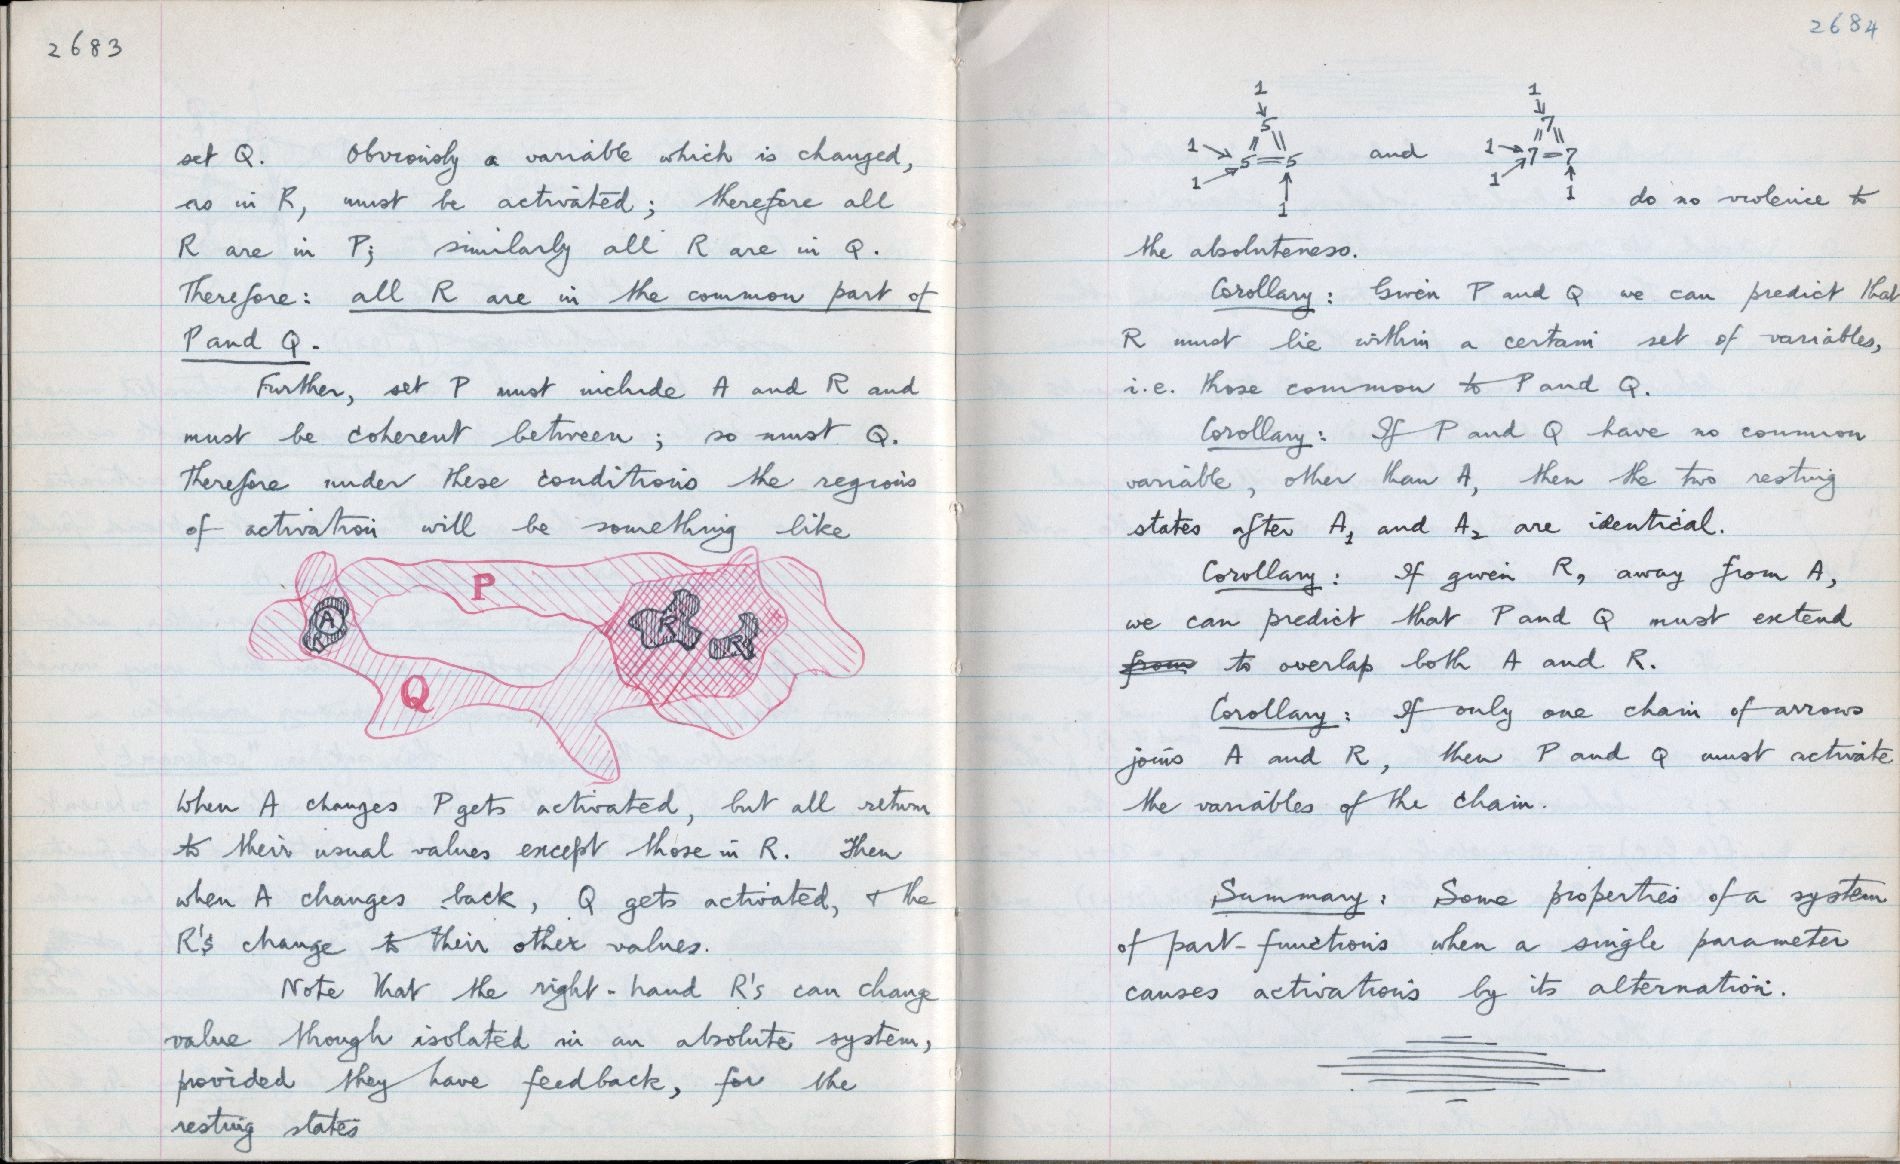 2683
set Q. Obviously a variable which is changed,
as in R, must be activated; therefore all
R are in P; similarly all R are in Q.
Therefore: all R are in the common part of
P and Q.
Further, set P must include A and R and
must be coherent between; so must Q.
Therefore under these conditions the regions
of activation will be something like
P
A
R
R
R
Q
When A changes P gets activated, but all return
to their usual values except those in R. Then
when A changes back, Q gets activated, & the
R's change to their other values.
Note that the right-hand R's can change
value though isolated in an absolute system,
provided they have feedback, for the
resting states
2684
1 1
5 7
1 5 = 5 and 1 7 = 7
1 1
1 1 do no violence to
the absoluteness.
Corollary: Given P and Q we can predict that
R must lie within a certain set of variables,
i.e. those common to P and Q.
Corollary: If P and Q have no common
variable, other than A, then the two resting
states after A1 and A2 are identical.
Corollary: If given R, away from A,
we can predict that P and Q must extend
from to overlap both A and R.
Corollary: If only one chain of arrows
joins A and R, then P and Q must activate
the variables of the chain.
Summary: Some properties of a system
of part-functions when a single parameter
causes activations by its alternation.